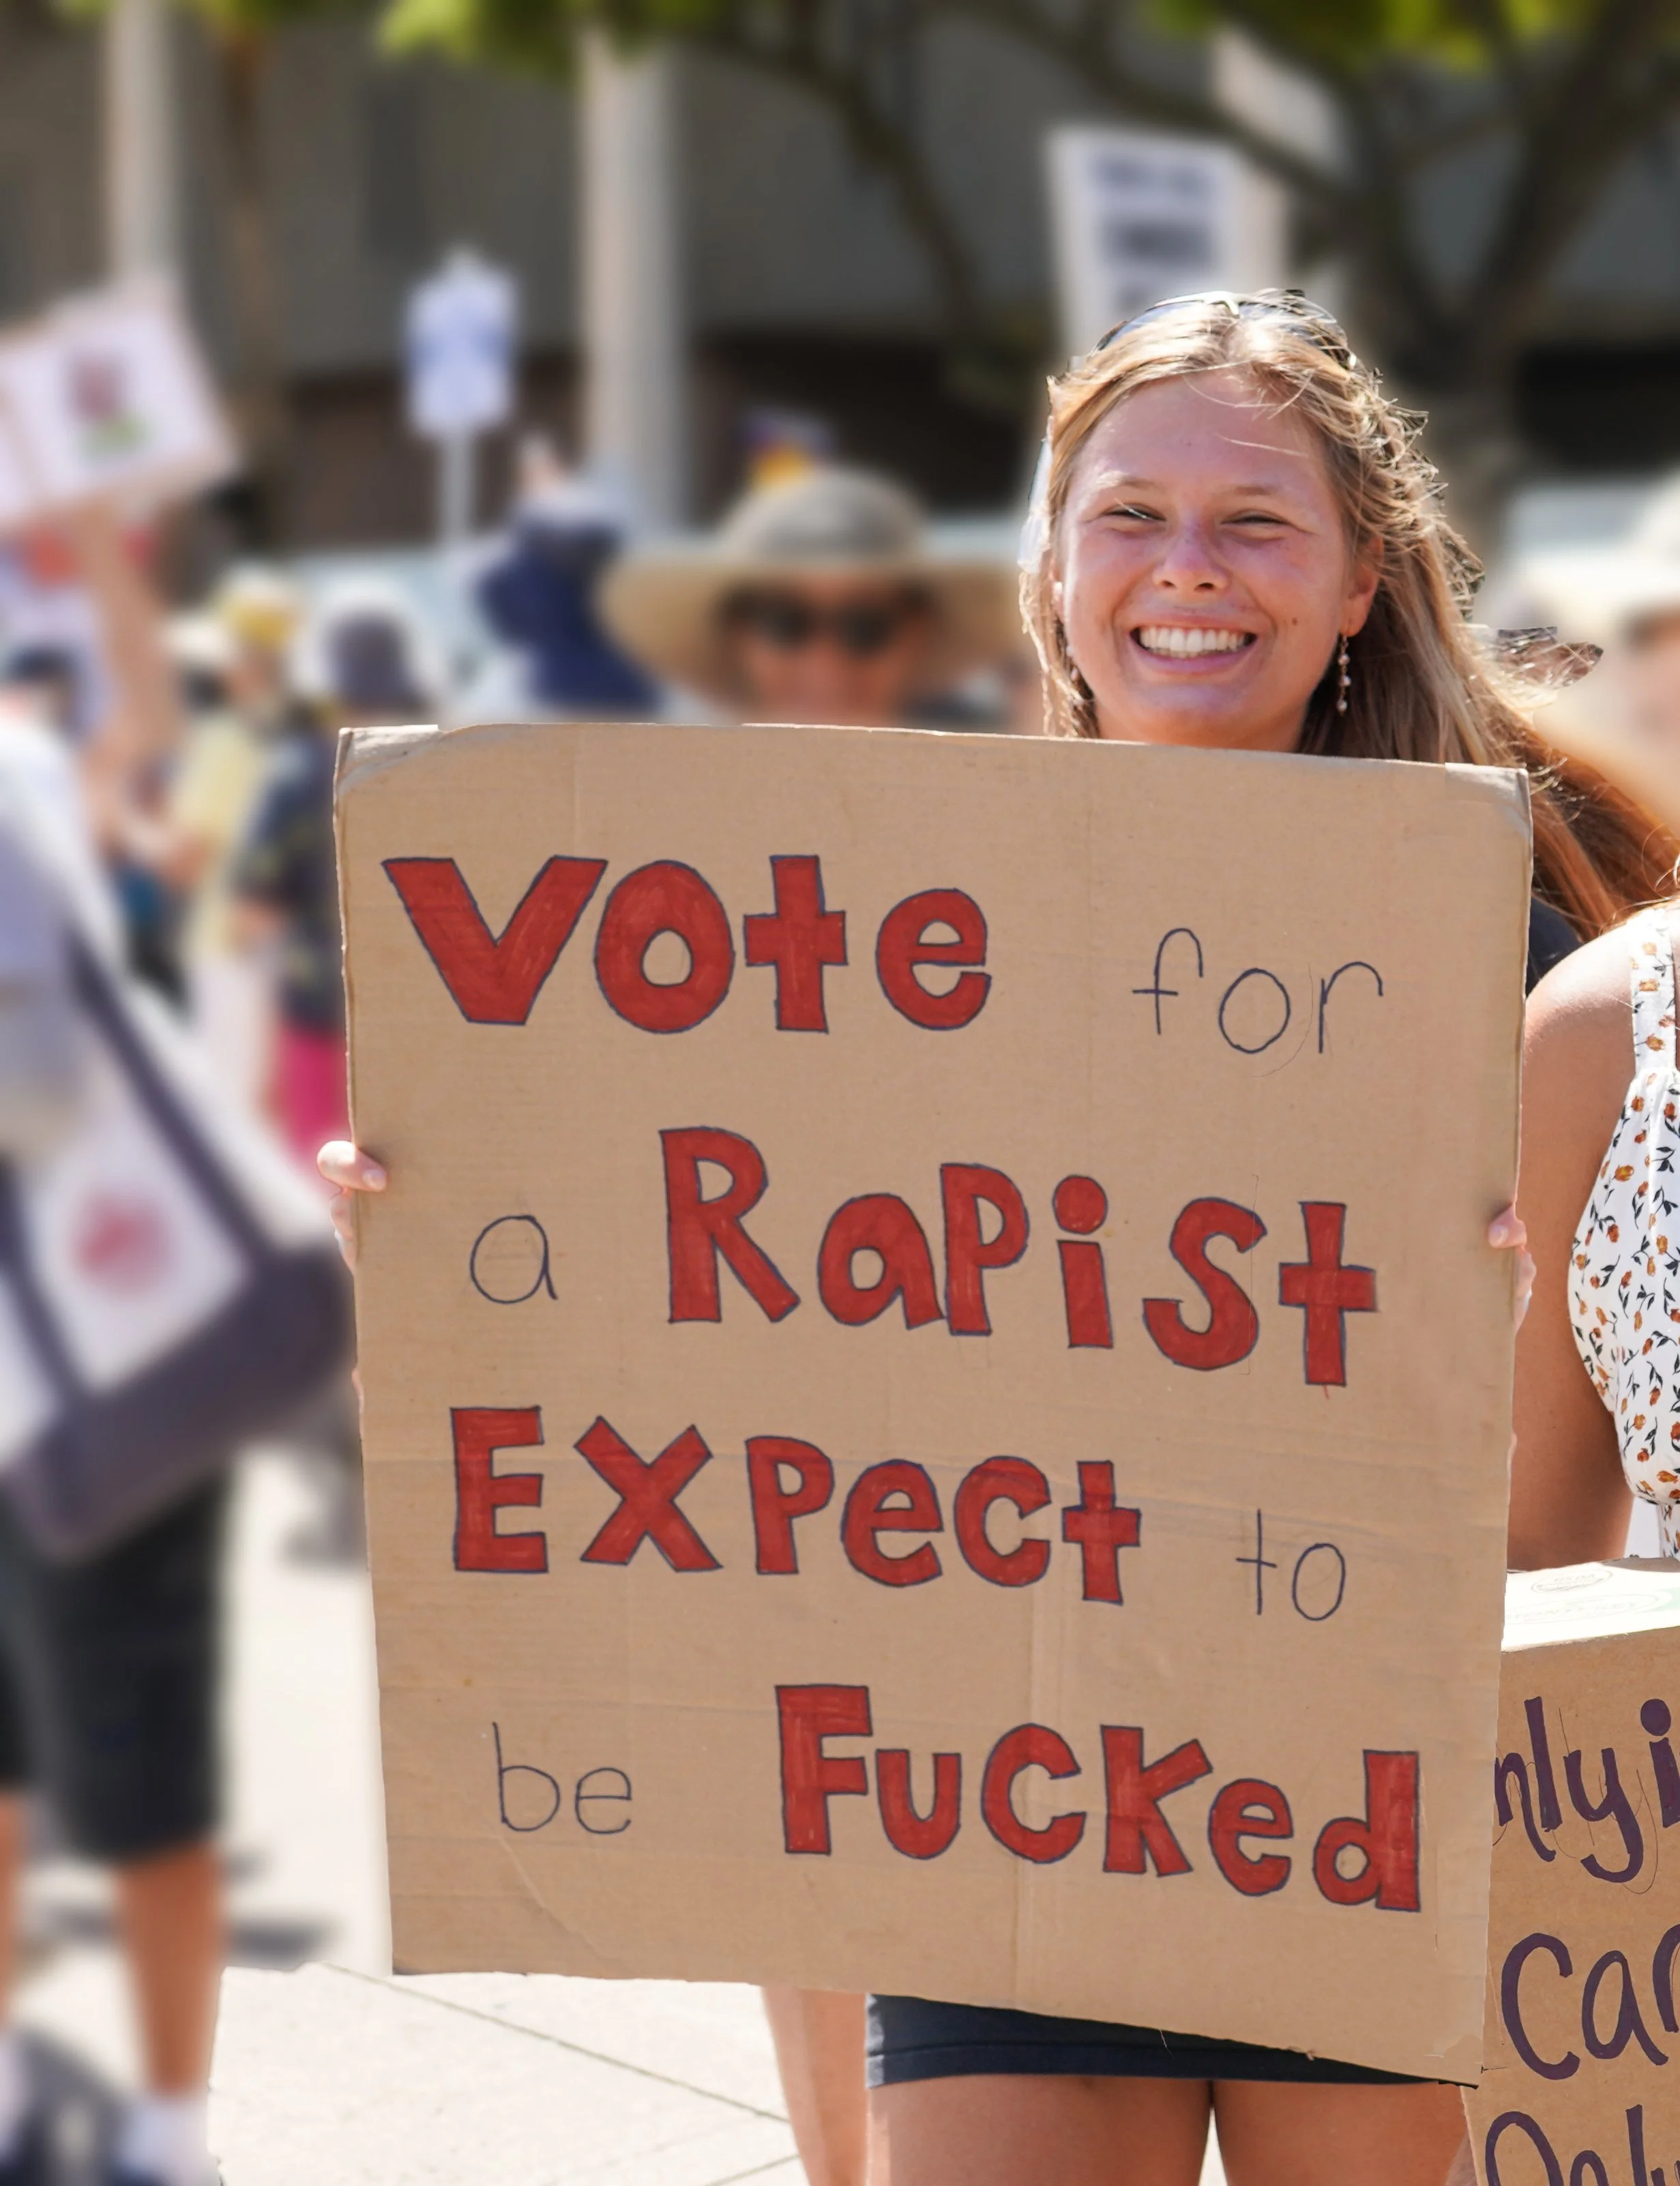 Vote for
a Rapist
Expect to
be Fucked
Only